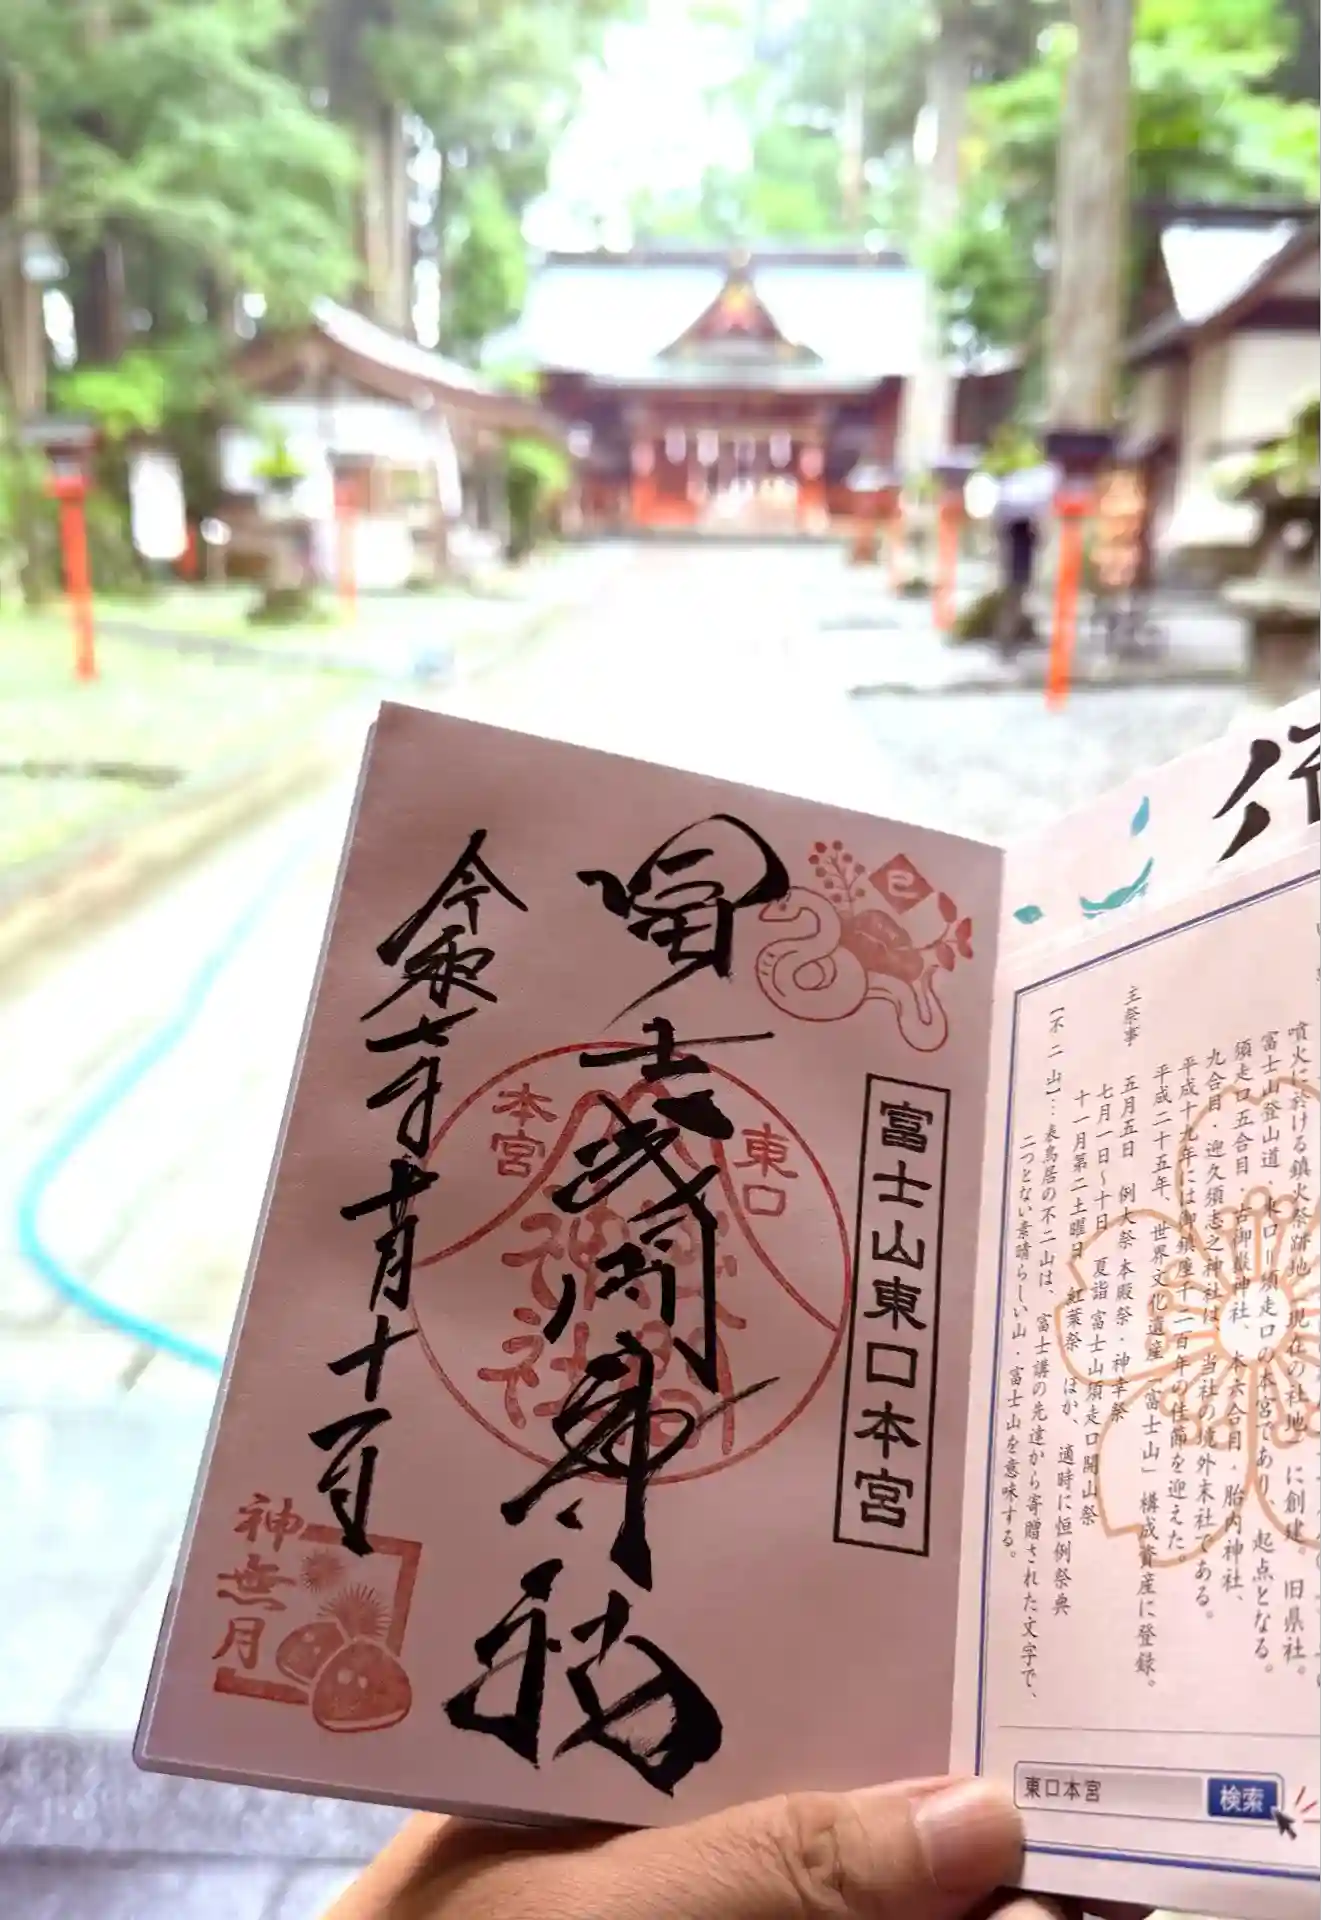 巳
富士山東口本宮
冨士浅間神社
東口
本宮
浅間
神社
令和七年十月十一日
神無月
噴火に於ける鎮火祭跡地(現在の社地)に創建。旧県社。
富士山登山道、東口=須走口の本宮であり、起点となる。
須走口五合目・古御嶽神社、本六合目・胎内神社、
九合目・迎久須志之神社は、当社の境外末社である。
平成十九年には御鎮座千二百年の佳節を迎えた。
平成二十五年、世界文化遺産「富士山」構成資産に登録。
主祭事 五月五日 例大祭 本殿祭・神幸祭
七月一日~十日 夏詣 富士山須走口開山祭
十一月第二土曜日 紅葉祭 ほか、適時に恒例祭典
【不二山】…表鳥居の不二山は、富士講の先達から寄贈された文字で、
二つとない素晴らしい山・富士山を意味する。
東口本宮 検索